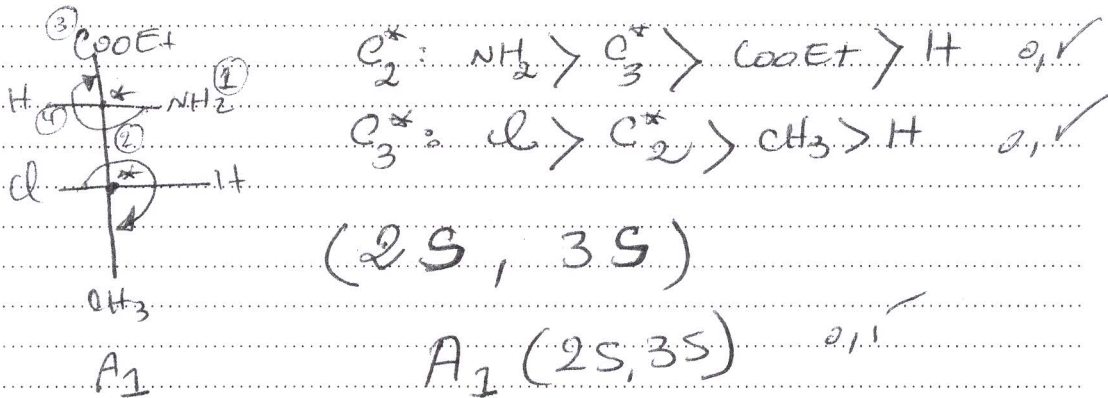 ③ COOEt
H ④ * NH2 ①
②
Cl * H
CH3
A1
C2*: NH2 > C3* > COOEt > H 0,1 ✓
C3*: Cl > C2* > CH3 > H 0,1 ✓
(2S, 3S)
A1 (2S,3S) 0,1